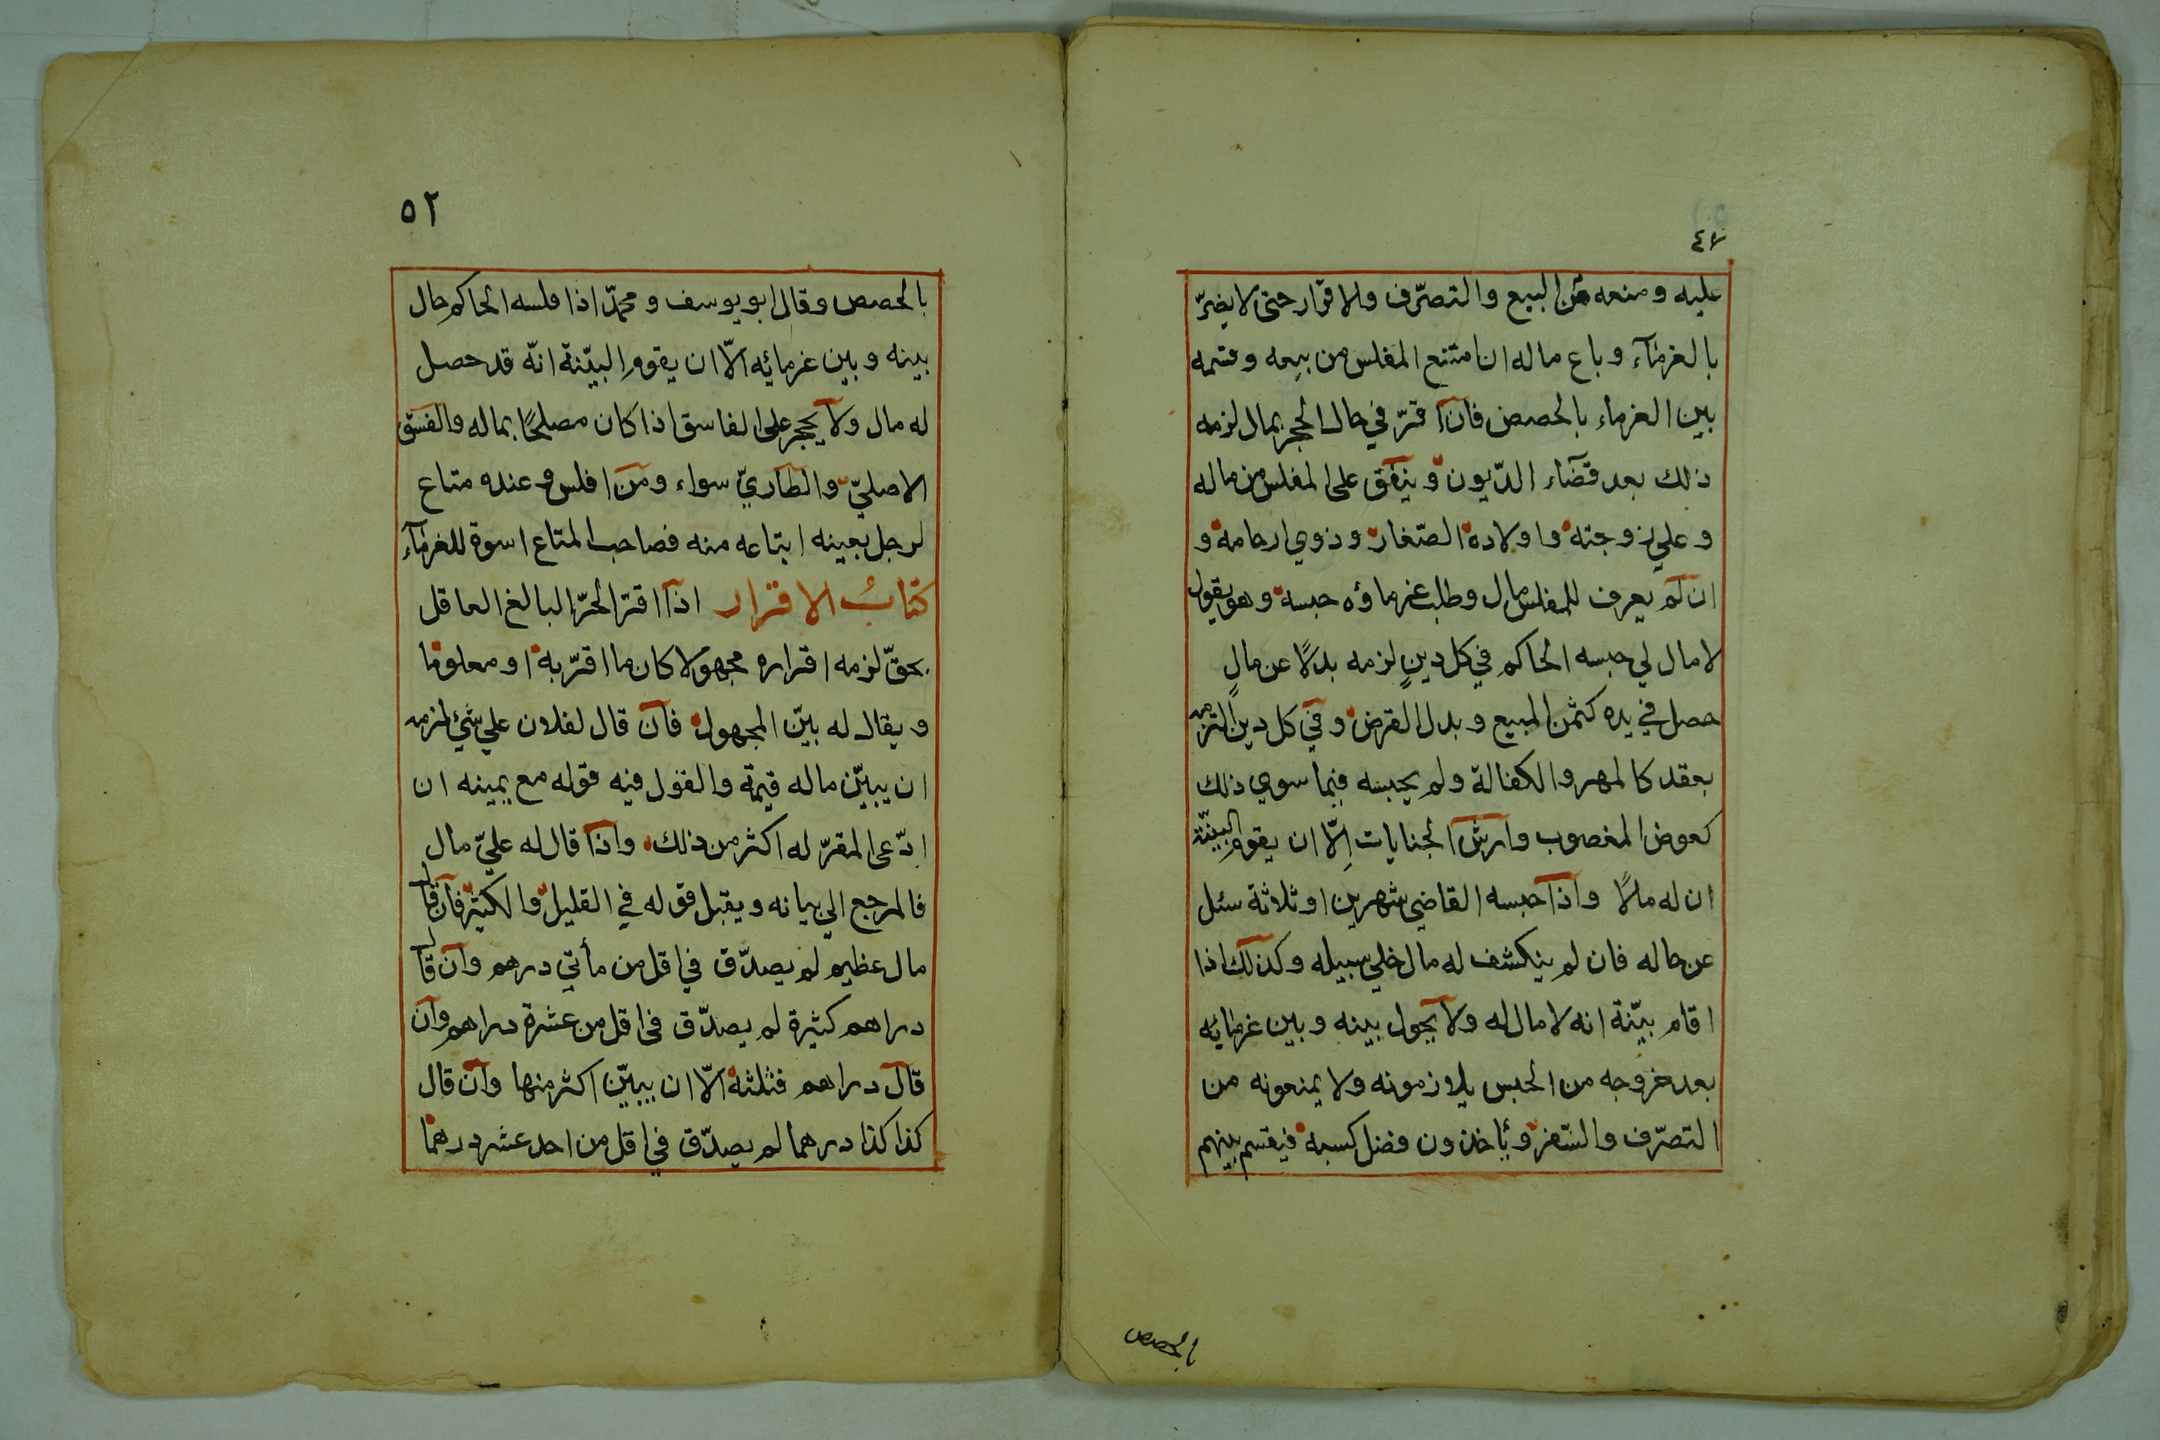 ٤٧
عليه ومنعه من البيع والتصرّف والاقرار حتى لا يضرّ
بالغرمآء وباع ماله ان امتنع المفلس من بيعه وقسمه
بين الغرماء بالحصص فان اقرّ في حال الحجر بمال لزمه
ذلك بعد قضآء الدّيون وينفق على المفلس من ماله
وعلي زوجته واولاده الصّغار وذوي ارحامه و
ان لم يعرف للمفلس مال وطلب غرماؤه حبسه وهو يقول
لا مال لي حبسه الحاكم في كل دينٍ لزمه بدلًا عن مالٍ
حصل في يده كثمن المبيع وبدل القرض وفي كل دين التزمه
بعقد كالمهر والكفالة ولم يحبسه فيما سوي ذلك
كعوض المغصوب وارش الجنايات إلّا ان يقوم البيّنة
ان له مالًا واذا حبسه القاضي شهرين او ثلاثة سئل
عن حاله فان لم ينكشف له مال خلي سبيله وكذلك اذا
اقام بيّنة انه لا مال له ولا يحول بينه وبين غرمائه
بعد خروجه من الحبس يلازمونه ولا يمنعونه من
التصرّف والسّفر ويأخذون فضل كسبه فيقسم بينهم
بالحصص
٥٢
بالحصص وقال ابو يوسف ومحمّد اذا فلسه الحاكم حال
بينه وبين غرمائه الّا ان يقوم البيّنة انّه قد حصل
له مال ولا يحجر على الفاسق اذا كان مصلحًا بماله والفسق
الاصليّ والطاريّ سواء ومن افلس وعنده متاع
لرجل بعينه ابتاعه منه فصاحب المتاع اسوة للغرمآء
كتابُ الاقرار اذا اقرّ الحرّ البالغ العاقل
بحقّ لزمه اقراره مجهولا كان ما اقرّ به او معلوما
ويقال له بيّن المجهول فان قال لفلان علي شئ لزمه
ان يبيّن ماله قيمة والقول فيه قوله مع يمينه ان
ادّعى المقرّ له اكثر من ذلك واذا قال له عليّ مال
فالمرجع الي بيانه ويقبل قوله في القليل والكثير فان قال
مال عظيم لم يصدّق في اقل من مأتي درهم وان قال
دراهم كثيرة لم يصدّق في اقل من عشرة دراهم وان
قال دراهم فثلثة الّا ان يبيّن اكثر منها وان قال
كذا كذا درهما لم يصدّق في اقل من احد عشر درهما